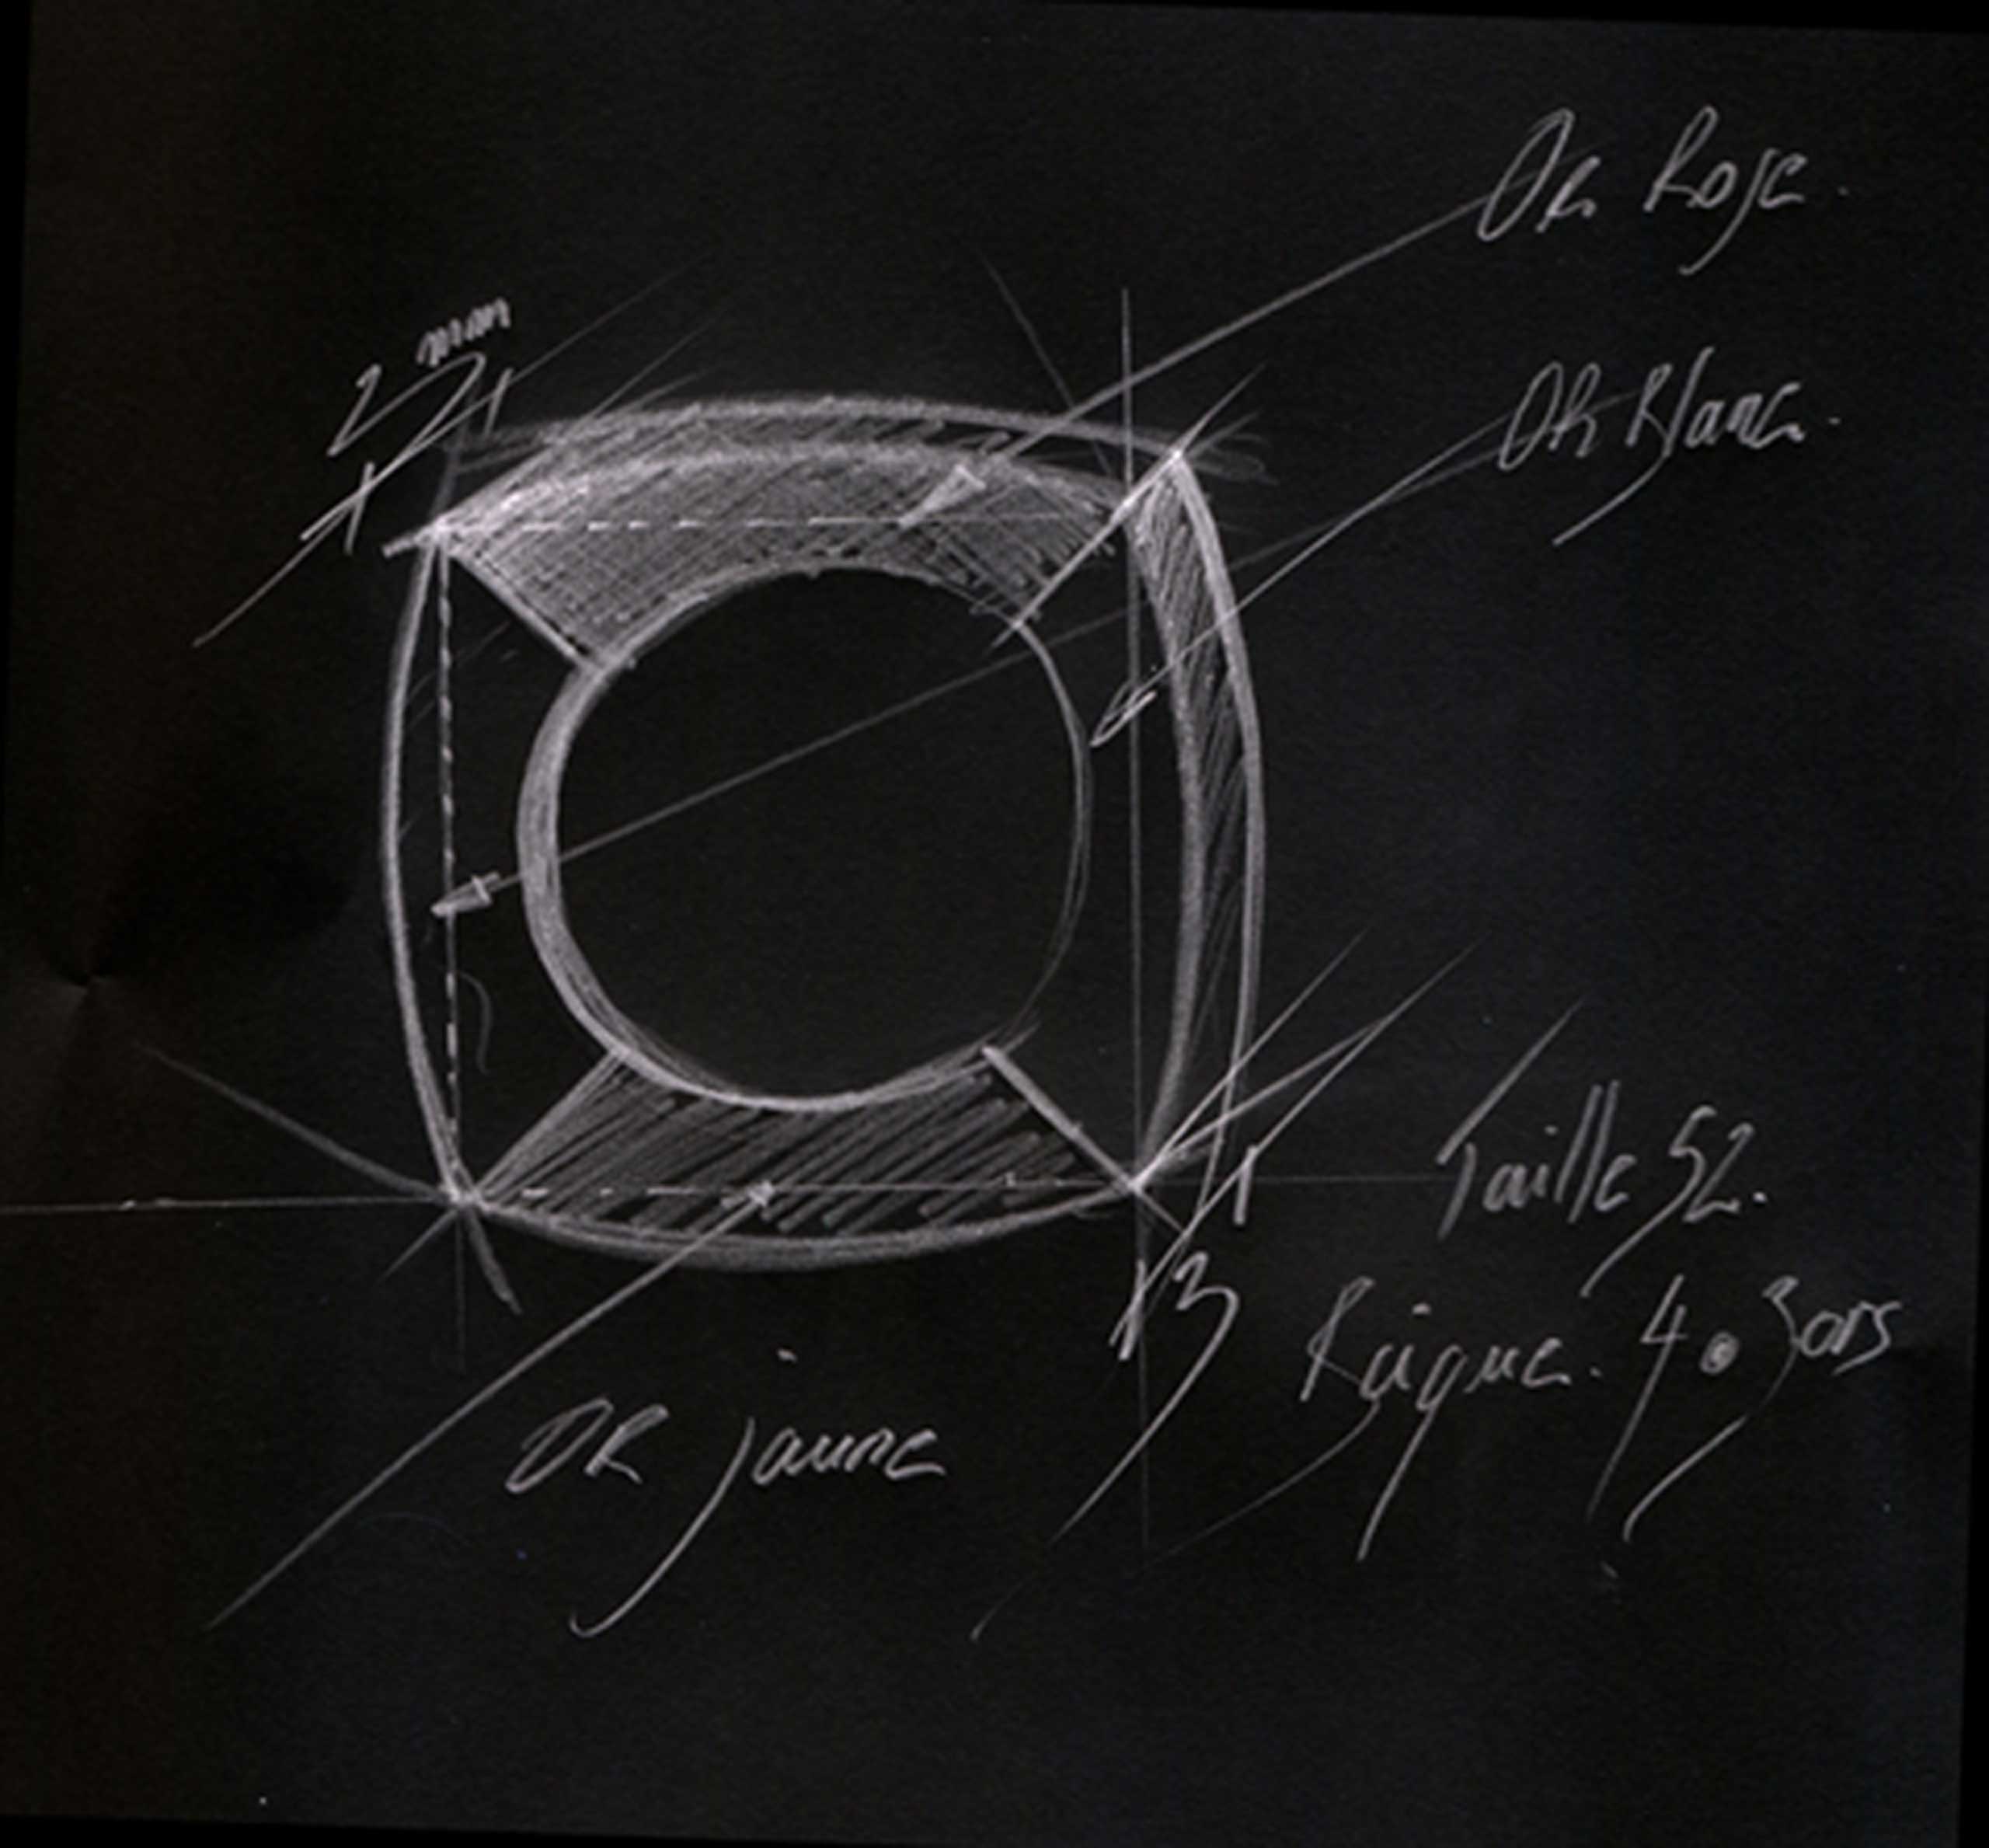 OR Rose.
2 mm
OR Blanc.
Taille 52.
3
Bague. 4 • 3 ors
OR jaune